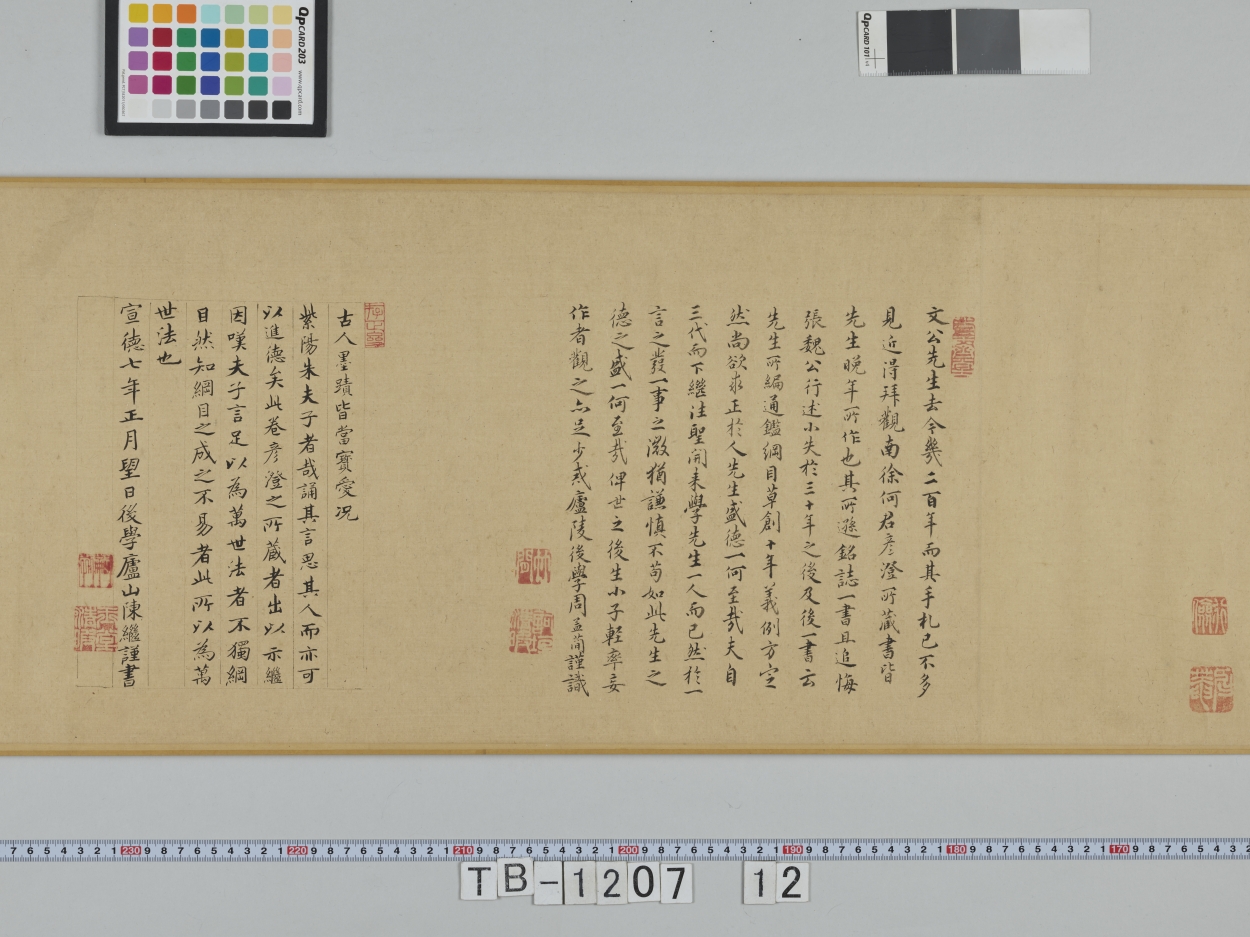 文公先生去今幾二百年而其手札已不多
見近得拜觀南徐何君彥澄所藏書皆
先生晚年所作也其所遜銘誌一書且追悔
張魏公行述小失於三十年之後及後一書云
先生所編通鑑綱目草創十年義例方定
然尚欲求正於人先生盛德一何至哉夫自
三代而下繼往聖開来學先生一人而已然於一
言之發一事之微猶謙慎不苟如此先生之
德之盛一何至哉俾世之後生小子輕率妄
作者觀之亦足少戒廬陵後學周孟簡謹識
古人墨蹟皆當寶愛况
紫陽朱夫子者哉誦其言思其人而亦可
以進德矣此卷彥澄之所藏者出以示繼
因嘆夫子言足以為萬世法者不獨綱
目然知綱目之成之不易者此所以為萬
世法也
宣德七年正月望日後學廬山陳繼謹書
QpCARD 203
www.qpcard.com
QpCARD 101
7 6 5 4 3 2 1 230 9 8 7 6 5 4 3 2 1 220 9 8 7 6 5 4 3 2 1 210 9 8 7 6 5 4 3 2 1 200 9 8 7 6 5 4 3 2 1 190 9 8 7 6 5 4 3 2 1 180 9 8 7 6 5 4 3 2 1 170 9 8 7 6 5 4 3 2
TB-1207 12